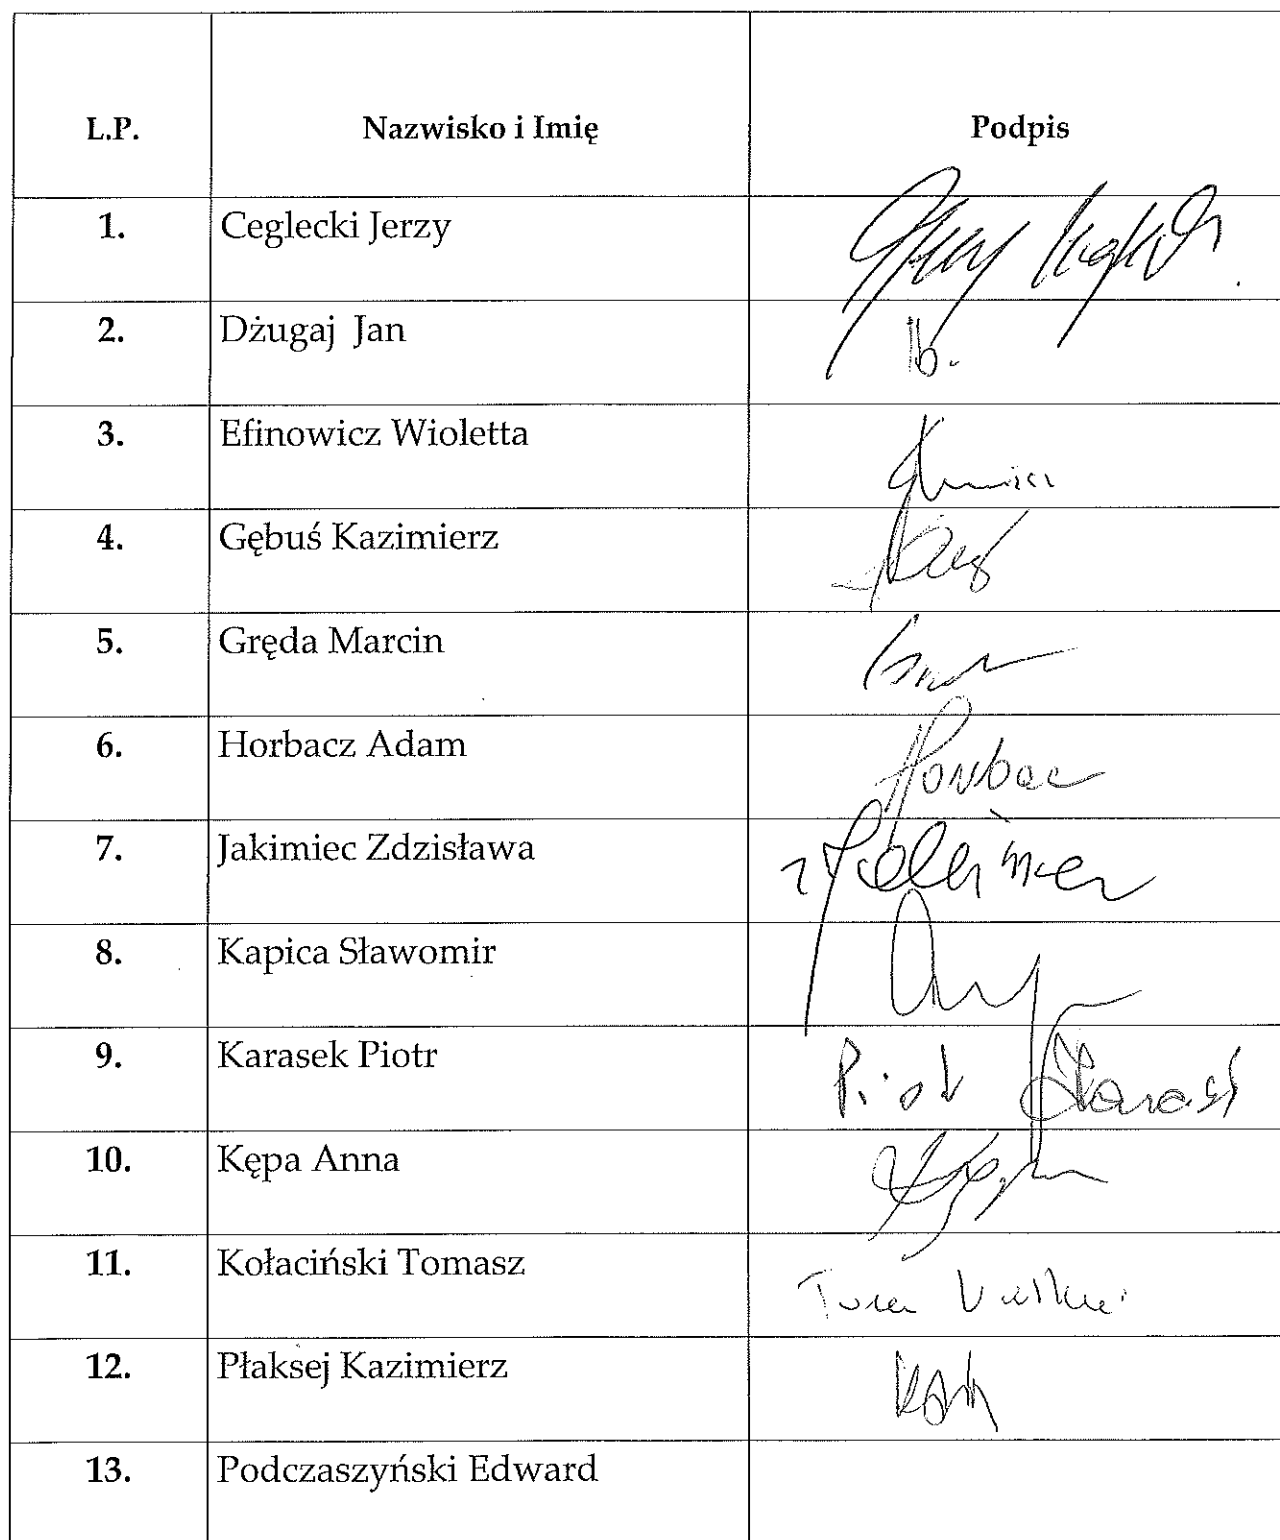 L.P. Nazwisko i Imię Podpis
1. Ceglecki Jerzy
2. Dżugaj Jan
3. Efinowicz Wioletta
4. Gębuś Kazimierz
5. Gręda Marcin
6. Horbacz Adam Horbac
7. Jakimiec Zdzisława
8. Kapica Sławomir
9. Karasek Piotr Piotr
10. Kępa Anna
11. Kołaciński Tomasz
12. Płaksej Kazimierz
13. Podczaszyński Edward